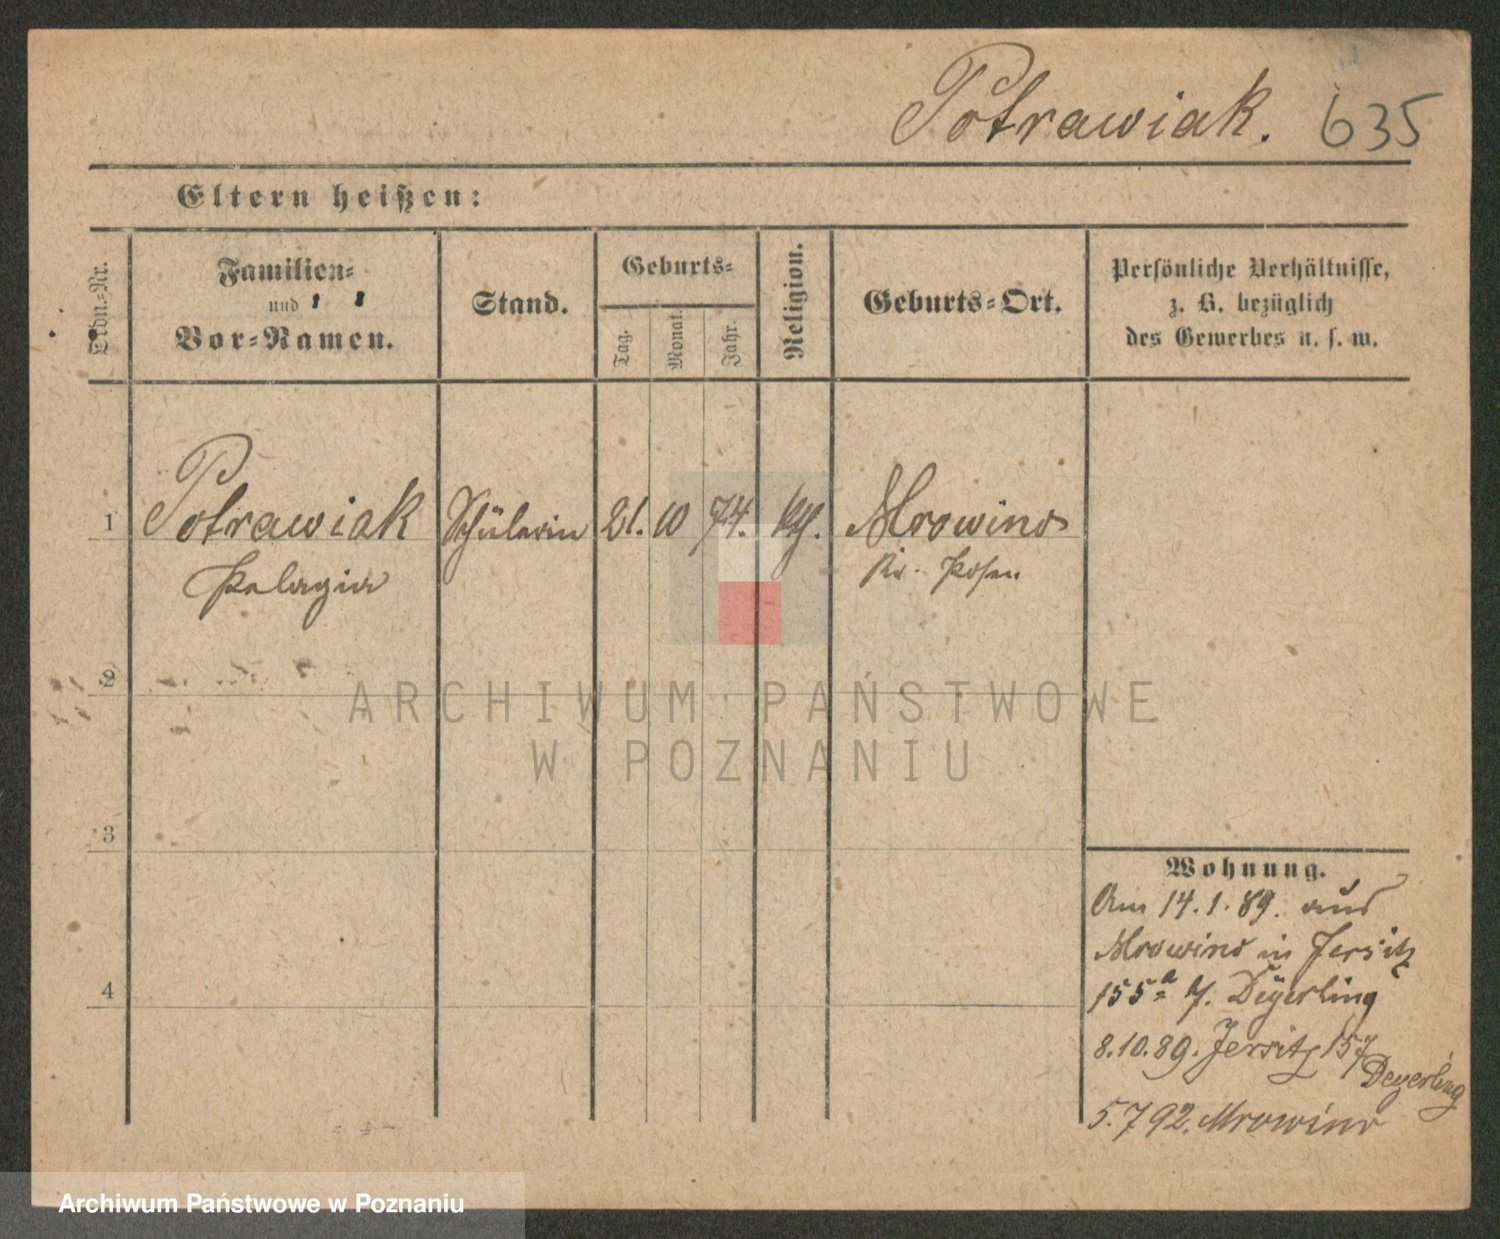 Potrawiak. 635
Eltern heißen:
Lfde-Nr.
Familien-
und
Vor-Namen.
Stand.
Geburts-
Tag.
Monat.
Jahr.
Religion.
Geburts-Ort.
Persönliche Verhältnisse,
z. B. bezüglich
des Gewerbes u. s. w.
1 Potrawiak Schülerin 21. 10 74. kth. Mrowino
Pelagia Kr. Posen
2
3
4
Wohnung.
Am 14.1.89. aus
Mrowino in Jersitz
155a Deyerling
8.10.89. Jersitz 157
Deyerling
5.7 92. Mrowino
ARCHIWUM PAŃSTWOWE
W POZNANIU
Archiwum Państwowe w Poznaniu